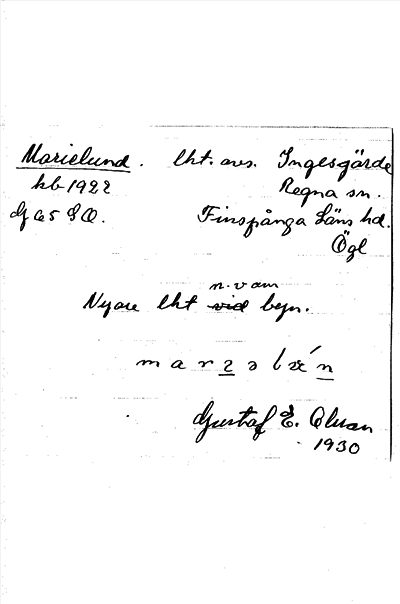 Marielund. lht. avs. Ingelsgärde
hb 1922 Regna sn.
Finspånga Läns hd.
Ögl
n. v om
Nyare lht vid byn.
m a r z ə l
Gustaf E. Olsson
1930